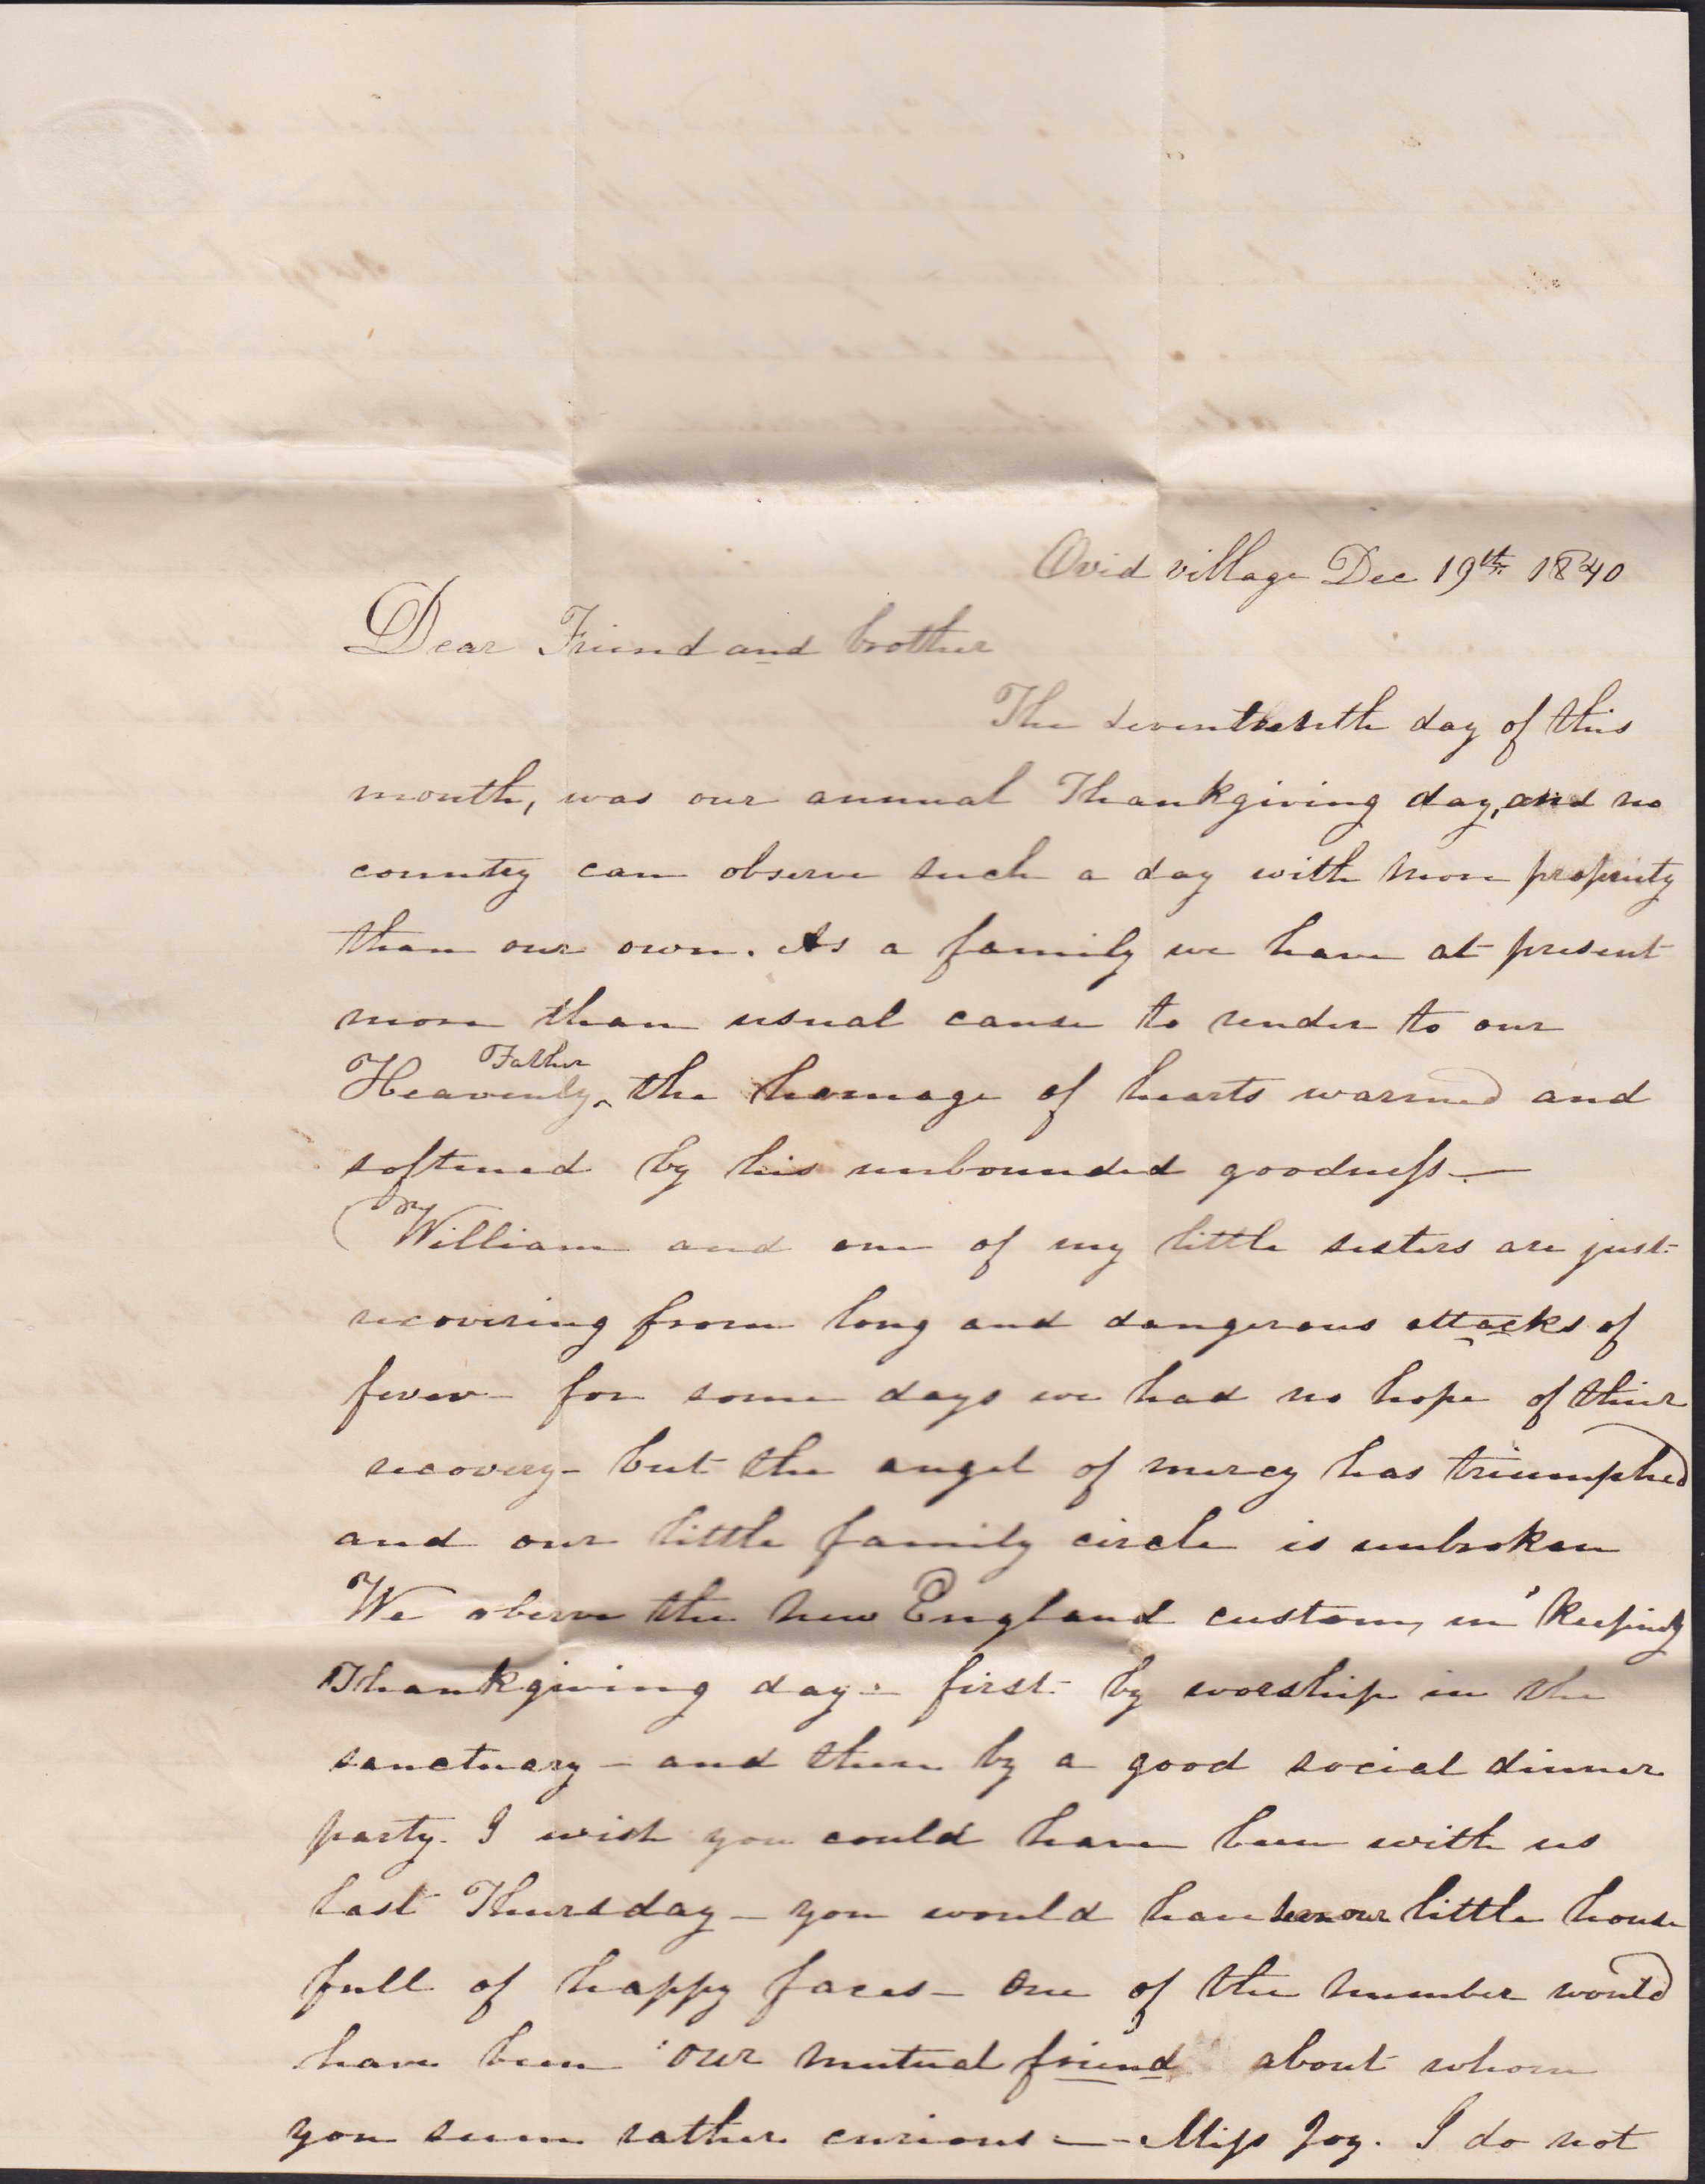 Ovid village Dec 19th 1840
Dear Friend and brother
The seventeenth day of this
month, was our annual Thankgiving day, and no
country can observe such a day with more propriety
than our own. As a family we have at present
more than usual cause to render to our
Heavenly ^Father the homage of hearts warmed and
softened by his unbounded goodness—
William and one of my little sisters are just
recovering from long and dangerous attacks of
fever— for some days we had no hope of thier
recovery— but the angel of mercy has triumphed
and our little family circle is unbroken
We observe the New England custom, in keeping
Thankgiving day— first by worship in the
sanctuary— and then by a good social dinner
party. I wish you could have been with us
last Thursday— you would have seen our little house
full of happy faces— One of the number would
have been our mutual friend about whom
you seem rather curious—— Miss Joy. I do not